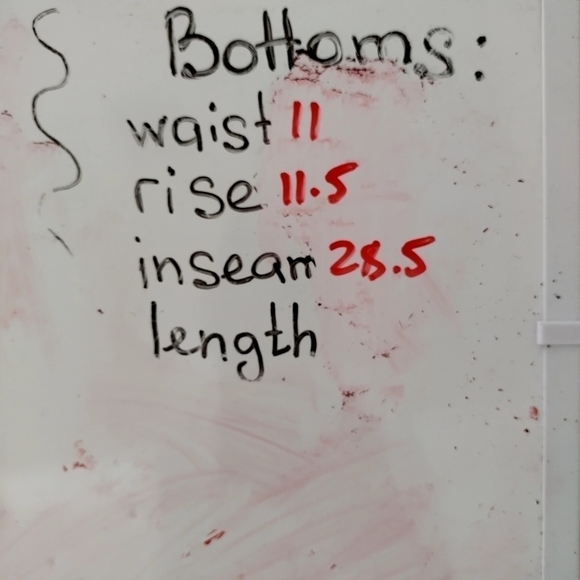 Bottoms:
waist 11
rise 11.5
inseam 28.5
length